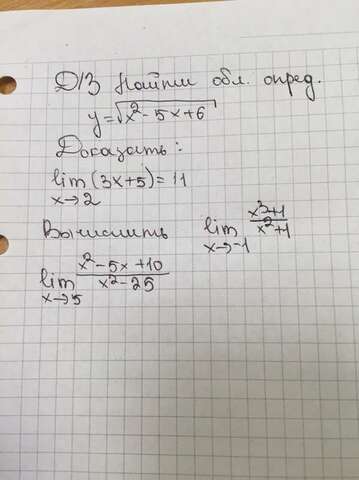 Д/З Найти обл. опред.
y=√x²-5x+6
Доказать:
lim (3x+5)=11
x→2
Вычислить lim x³+1/x²+1
x→-1
lim x²-5x+10/x²-25
x→5